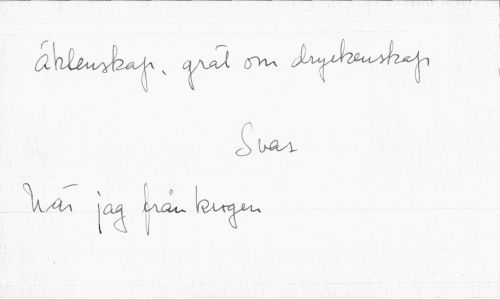 Äktenskap, gräl om dryckenskap
Svar
När jag från krogen